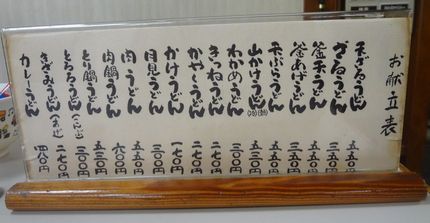 お献立表
天ざるうどん 五五〇円
ざるうどん 三五〇円
釜天うどん 五五〇円
釜あげうどん 三五〇円
天ぷらうどん
山かけうどん 五五〇円
わかめうどん 三〇〇円
きつねうどん 二七〇円
かやくうどん 三〇〇円
かけうどん 一七〇円
月見うどん
肉うどん
肉鍋うどん 六〇〇円
とり鍋うどん
とろろうどん(こんぶ)
きざみうどん 二七〇円
カレーうどん 四〇〇円